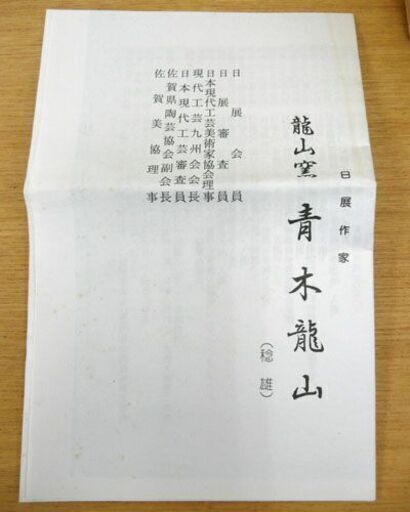 日展作家
龍山窯 青木龍山
(稔雄)
日展会員
日展審査員
日本現代工芸美術家協会理事
現代工芸九州会会長
日本現代工芸審査員
佐賀県陶芸協会副会長
佐賀美協理事